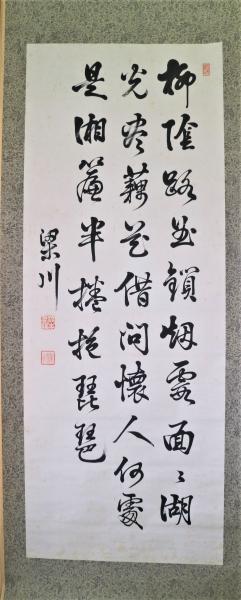 柳陰路曲鎖烟霞面々湖
光尽藕花借問懐人何處
是湘簾半捲抱琵琶
梁川